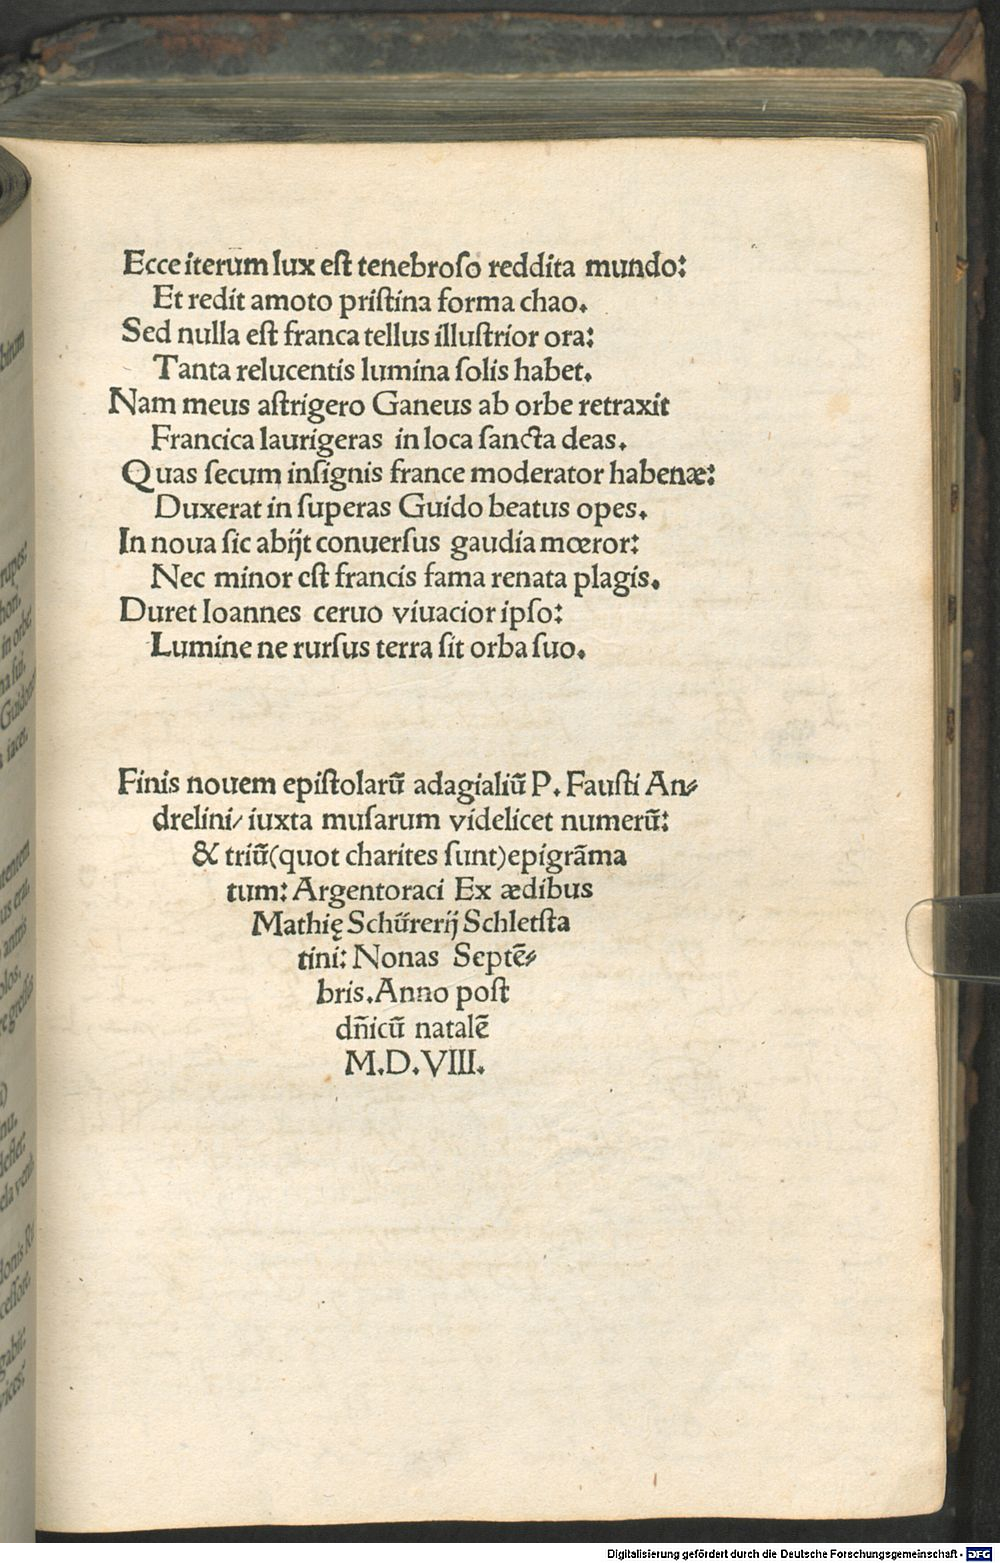 Ecce iterum lux eſt tenebroſo reddita mundo:
Et redit amoto priſtina forma chao.
Sed nulla eſt franca tellus illuſtrior ora:
Tanta relucentis lumina ſolis habet.
Nam meus aſtrigero Ganeus ab orbe retraxit
Francica laurigeras in loca ſancta deas.
Quas ſecum inſignis france moderator habenæ:
Duxerat in ſuperas Guido beatus opes.
In noua ſic abijt conuerſus gaudia mœror:
Nec minor eſt francis fama renata plagis.
Duret Ioannes ceruo viuacior ipſo:
Lumine ne rurſus terra ſit orba ſuo.
Finis nouem epiſtolarū adagialiū P. Fauſti An⸗
drelini/ iuxta muſarum videlicet numerū:
& triū(quot charites ſunt)epigrāma
tum: Argentoraci Ex ædibus
Mathię Schürerij Schletſta
tini: Nonas Septē⸗
bris. Anno poſt
dn̄icū natalē
M.D.VIII.
Digitalisierung gefördert durch die Deutsche Forschungsgemeinschaft - DFG